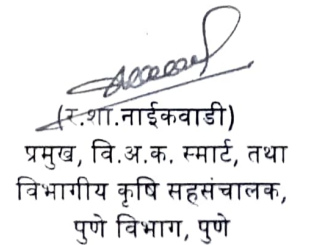 (र.शा.नाईकवाडी)
प्रमुख, वि.अ.क. स्मार्ट, तथा
विभागीय कृषि सहसंचालक,
पुणे विभाग, पुणे